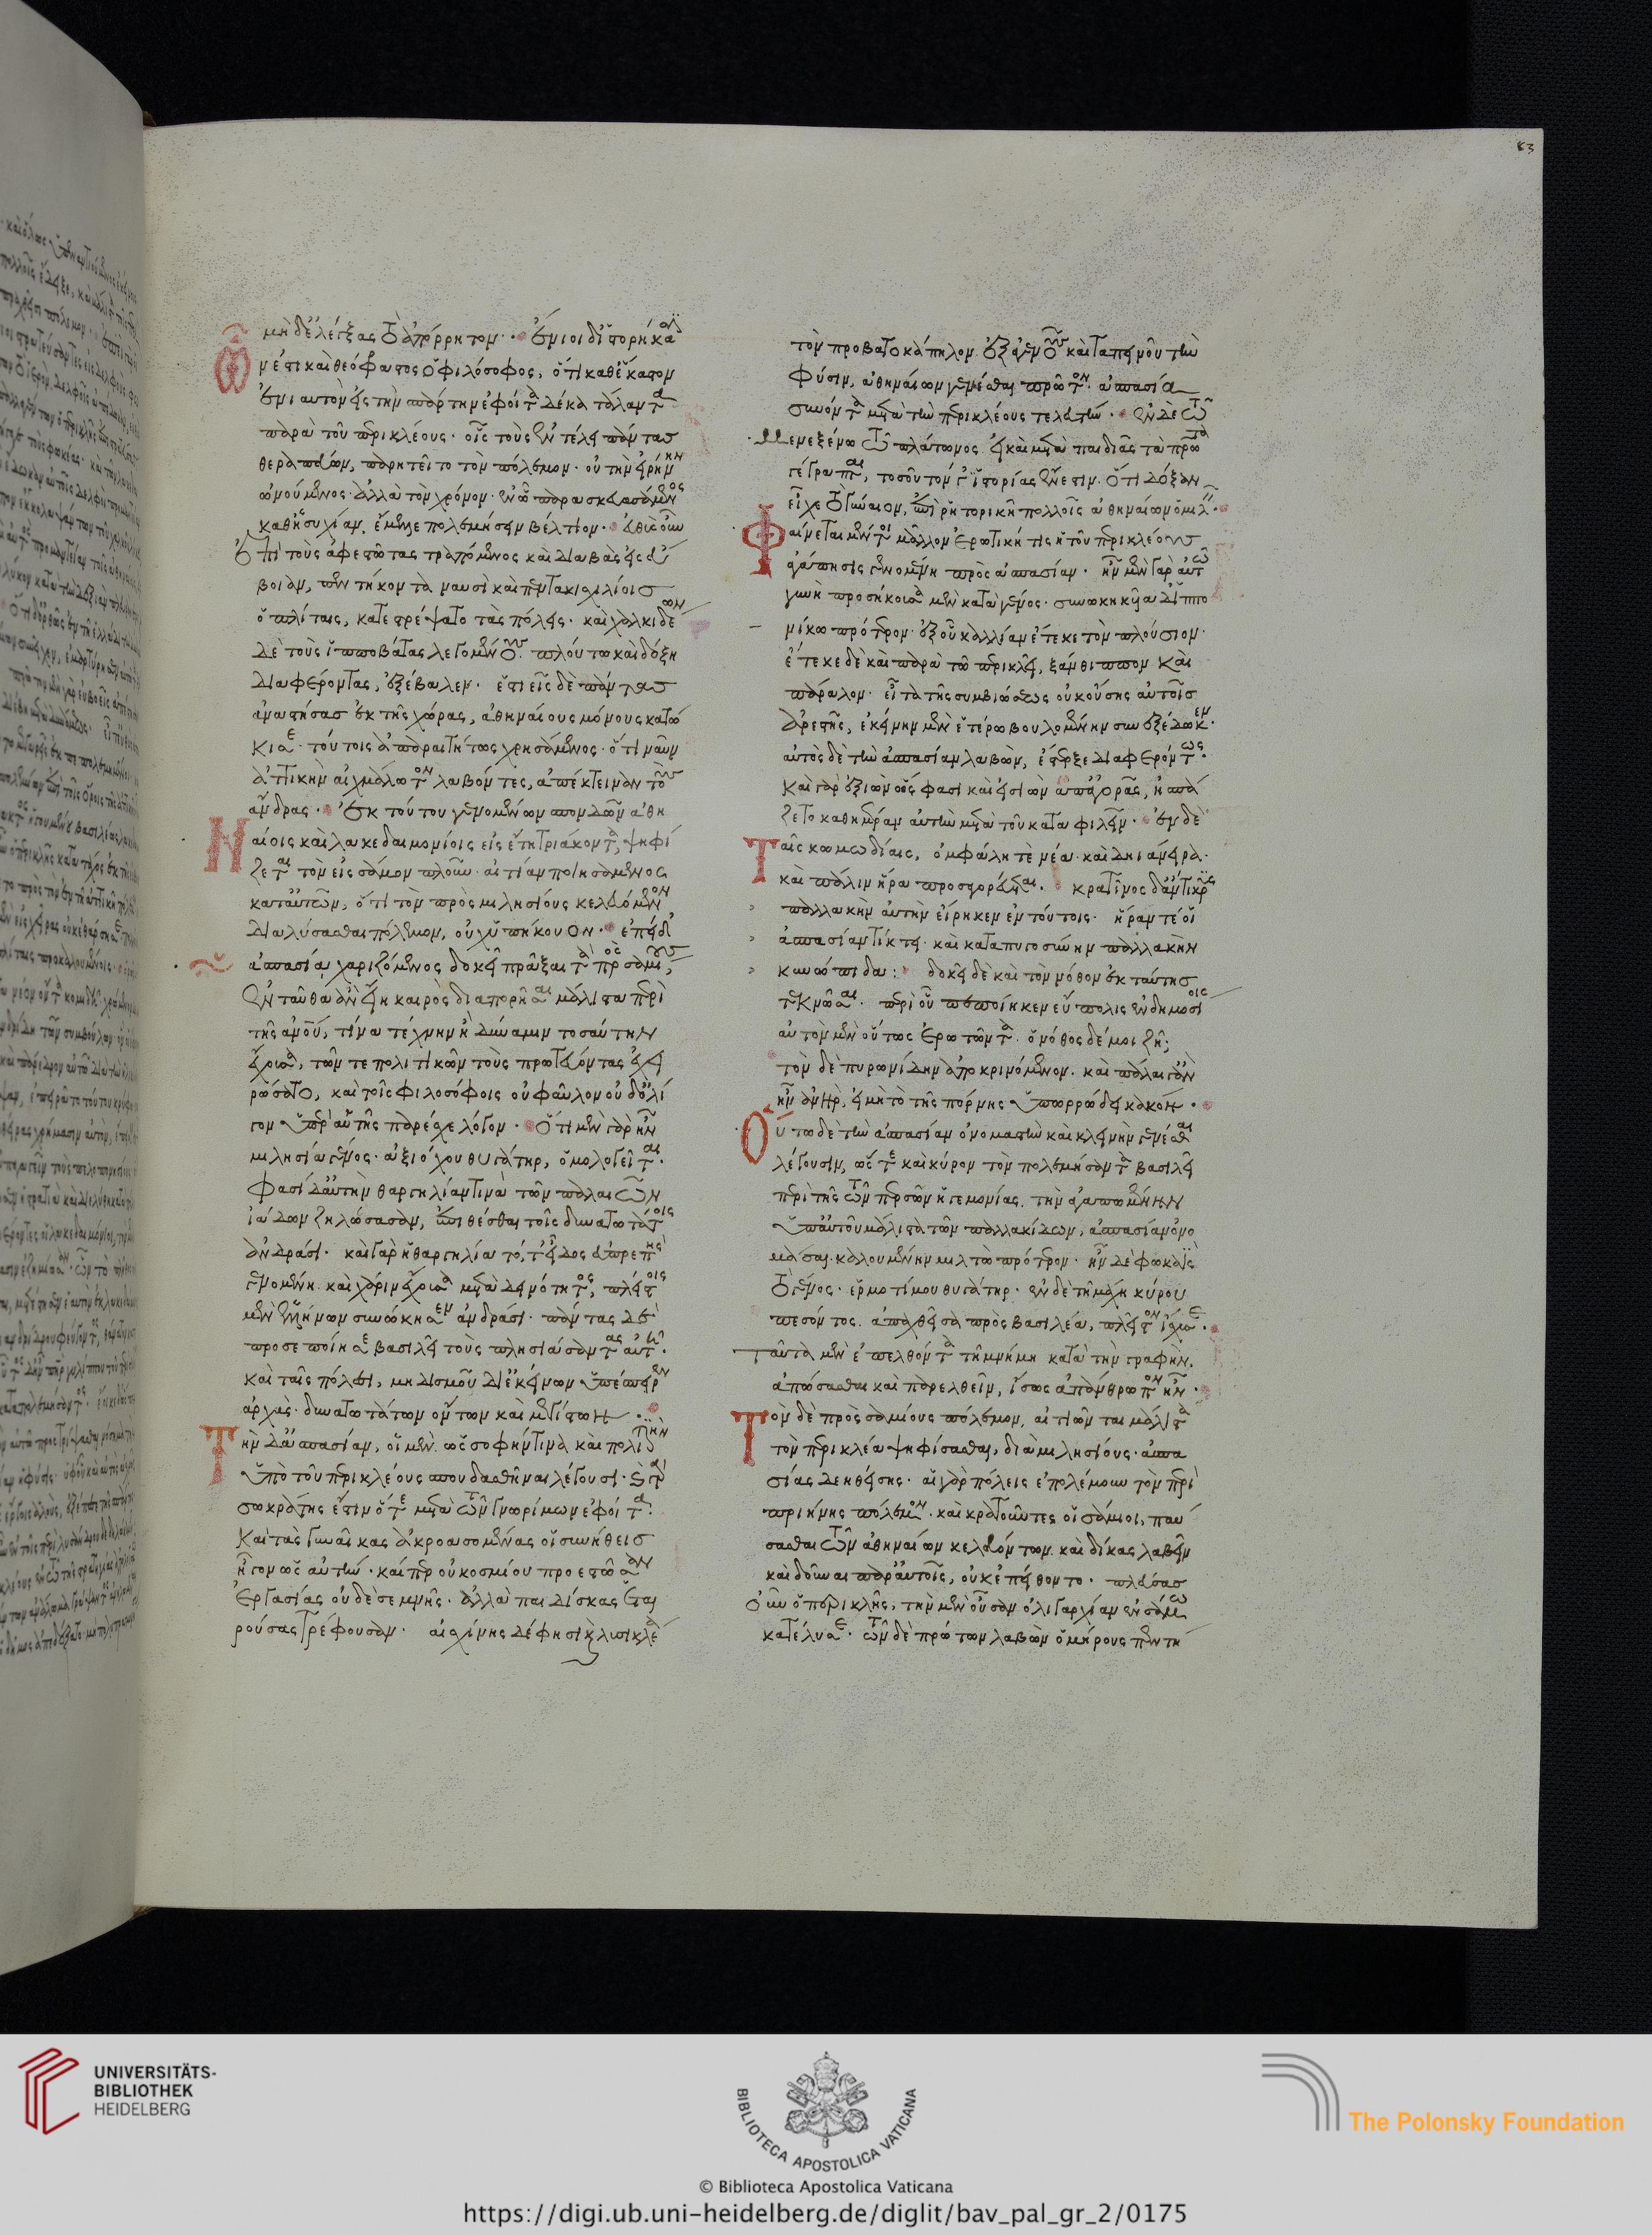 μὴδ' ἐλέγξας τὸ ἀπόρρητον· ἔνιοι δ' ἱστορήκασιν
ὧν ἐστὶ καὶ θεόφραστος ὁ φιλόσοφος, ὅτι καθ' ἕκαστον
ἐνιαυτὸν εἰς τὴν σπάρτην ἐφοίτα δέκα τάλαντα
παρὰ τοῦ περικλέους· οἷς τοὺς ἐν τέλει πάντας
θεραπεύων, παρῃτεῖτο τὸν πόλεμον· οὐ τὴν εἰρήνην
ὠνούμενος ἀλλὰ τὸν χρόνον· ἐν ᾧ παρασκευασάμενος
καθ' ἡσυχίαν, ἔμελλε πολεμήσειν βέλτιον· εὐθὺς οὖν
ἐπὶ τοὺς ἀφεστῶτας τραπόμενος καὶ διαβὰς εἰς εὔ
βοιαν, πεντήκοντα ναυσὶ καὶ πεντακισχιλίοις
ὁπλίταις, κατεστρέψατο τὰς πόλεις· καὶ χαλκιδέων
δὲ τοὺς ἱπποβότας λεγομένους πλούτω καὶ δόξη
διαφέροντας, ἐξέβαλεν· ἑστιεῖς δὲ πάντας
ἀναστήσας ἐκ τῆς χώρας, ἀθηναίους μόνους κατώ
κισε· τούτοις ἀπαραιτήτως χρησάμενος· ὅτι ναῦν
ἀττικὴν αἰχμάλωτον λαβόντες, ἀπέκτειναν τοὺς
ἄνδρας· ἐκ τούτου γενομένων σπονδῶν ἀθη
Ναίοις καὶ λακεδαιμονίοις εἰς ἔτη τριάκοντα, ψηφί
ζεται τὸν εἰς σάμον πλοῦν· αἰτίαν ποιησάμενος
κατ' αὐτῶν, ὅτι τὸν πρὸς μιλησίους κελευόμενον
διαλύσασθαι πόλεμον, οὐχ ὑπήκουον· ἐπεὶ δ'
ἀσπασία χαριζόμενος δοκεῖ πρᾶξαι τὰ πρὸς σαμίους,
ἐνταῦθα ἂν εἴη καιρὸς διαπορῆσαι μάλιστα περὶ
τῆς ἀνοῦ, τίνα τέχνην ἢ δύναμιν τοσαύτην
ἔχουσα, τῶν τε πολιτικῶν τοὺς πρωτεύοντας ἐχει
ρώσατο, καὶ τοῖς φιλοσόφοις οὐ φαῦλον οὐδ' ὀλί
γον ὑπὲρ αὑτῆς παρέσχε λόγον· Ὅτι μὲν γὰρ ἦν
μιλησία γένος· ἀξιόχου θυγάτηρ, ὁμολογεῖται·
φασὶ δ' αὐτὴν θαργηλίαν τινὰ τῶν παλαιῶν
ἰάδων ζηλώσασαν, ἐπιθέσθαι τοῖς δυνατωτάτοις
ἀνδράσι· καὶ γὰρ ἡ θαργηλία τό, τ' εἶδος εὐπρεπὴς
γενομένη καὶ χάριν ἔχουσα μετὰ δεινότητος, πλείστοις
μὲν ἑλλήνων συνώκησεν ἀνδράσι· πάντας δὲ
προσεποίησε βασιλεῖ τοὺς πλησιάσαντας αὐτῆ·
καὶ ταῖς πόλεσι, μηδισμοῦ δι' ἐκείνων ὑπέσπειρεν
ἀρχὰς· δυνατωτάτων ὄντων καὶ μεγίστων·
Τὴν δ' ἀσπασίαν, οἱ μὲν ὡς σοφήν τινα καὶ πολιτικὴν
ὑπὸ τοῦ περικλέους σπουδασθῆναι λέγουσι· καὶ γὰρ
σωκράτης ἔστιν ὅτε μετὰ τῶν γνωρίμων ἐφοίτα·
καὶ τὰς γυναῖκας ἀκροασομένας οἱ συνήθεις
ἦγον ὡς αὐτὴν· καίπερ οὐ κοσμίου προεστῶσαν
ἐργασίας οὐδὲ σεμνῆς· ἀλλὰ παιδίσκας ἑται
ρούσας τρέφουσαν· αἰσχίνης δέ φησι καὶ λυσικλέα
τὸν προβατοκάπηλον ἐξ ἀγενοῦς καὶ ταπεινοῦ τὴν
φύσιν, ἀθηναίων γενέσθαι πρῶτον· ἀσπασία
συνόντα μετὰ τὴν περικλέους τελευτήν· ἐν δὲ τῶ
Μενεξένω τῶ πλάτωνος εἰ καὶ μετὰ παιδιᾶς τὰ πρῶτα
γέγραπται, τοσοῦτόν γ' ἱστορίας ἔνεστιν· ὅτι δόξαν
εἶχε τὸ γύναιον, ἐπὶ ῥητορικῆ πολλοῖς ἀθηναίων ὁμιλεῖν·
Φαίνεται μέντοι μᾶλλον ἐρωτική τις ἡ τοῦ περικλέους
ἀγάπησις γενομένη πρὸς ἀσπασίαν· ἦν μὲν γὰρ αὐτῶ
γυνὴ προσήκουσα μὲν κατὰ γένος· συνωκηκυῖα δ' ἱππο
νίκω πρότερον· ἐξ οὗ καλλίαν ἔτεκε τὸν πλούσιον·
ἔτεκε δὲ καὶ παρὰ τῶ περικλεῖ, ξάνθιππον καὶ
πάραλον· εἶτα τῆς συμβιώσεως οὐκ οὔσης αὐτοῖς
ἀρεστῆς, ἐκείνην μὲν ἑτέρω βουλομένην συνεξέδωκεν·
αὐτὸς δὲ τὴν ἀσπασίαν λαβὼν, ἔστερξε διαφερόντως·
καὶ γὰρ ἐξιὼν ὥς φασι καὶ εἰσιὼν ἀπ' ἀγορᾶς, ἠσπά
ζετο καθημέραν αὐτὴν μετὰ τοῦ καταφιλεῖν· ἐν δὲ
Ταῖς κωμωδίαις, ὀμφάλη τὲ νέα· καὶ δηιάνειρα·
καὶ πάλιν ἥρα προσαγορεύεται· κρατῖνος δ' ἄντικρυς
παλλακὴν αὐτὴν εἴρηκεν ἐν τούτοις· ἥραν τέ οἱ
ἀσπασίαν τίκτει· καὶ καταπυγοσύνην παλλακὴν
κυνώπιδα: δοκεῖ δὲ καὶ τὸν νόθον ἐκ ταύτης
τεκνῶσαι· περὶ οὗ πεποίηκεν εὔπολις ἐν δήμοις
αὐτὸν μὲν οὕτως ἐρωτῶντα· ὁ νόθος δέ μοι ζῆ;
τὸν δὲ πυρωνίδην ἀποκρινόμενον· καὶ πάλαι γ' ἂν
ἦν ἀνὴρ, εἰ μὴ τὸ τῆς πόρνης ὑπωρρώδει κακόν·
Οὕτω δὲ τὴν ἀσπασίαν ὀνομαστὴν καὶ κλεινὴν γενέσθαι
λέγουσιν, ὥστε καὶ κύρον τὸν πολεμήσαντα βασιλεῖ
περὶ τῆς τῶν περσῶν ἡγεμονίας, τὴν ἀγαπωμένην
ὑπ' αὐτοῦ μάλιστα τῶν παλλακίδων, ἀσπασίαν ὀνο
μάσαι· καλουμένην μιλτὼ πρότερον· ἦν δὲ φωκαῒς
τὸ γένος· ἑρμοτίμου θυγάτηρ· ἐν δὲ τῆ μάχη κύρου
πεσόντος· ἀπαχθεῖσα πρὸς βασιλέα, πλεῖστον ἴσχυσε·
ταῦτα μὲν ἐπελθόντα τῆ μνήμη κατὰ τὴν γραφὴν,
ἀπώσασθαι καὶ παρελθεῖν, ἴσως ἀπάνθρωπον ἦν·
Τὸν δὲ πρὸς σαμίους πόλεμον, αἰτιῶνται μάλιστα
τὸν περικλέα ψηφίσασθαι, διὰ μιλησίους· ἀσπα
σίας δεηθείσης· αἱ γὰρ πόλεις ἐπολέμουν τὸν περὶ
πριήνης πόλεμον· καὶ κρατοῦντες οἱ σάμιοι, παύ
σασθαι τῶν ἀθηναίων κελευόντων καὶ δίκας λαβεῖν
καὶ δοῦναι παρ' αὐτοῖς, οὐκ ἐπείθοντο· πλεύσας
οὖν ὁ περικλῆς, τὴν μὲν οὖσαν ὀλιγαρχίαν ἐν σάμω
κατέλυσε· τῶν δὲ πρώτων λαβὼν ὁμήρους πεντή
UNIVERSITÄTS-
BIBLIOTHEK
HEIDELBERG
BIBLIOTECA APOSTOLICA VATICANA
The Polonsky Foundation
© Biblioteca Apostolica Vaticana
https://digi.ub.uni-heidelberg.de/diglit/bav_pal_gr_2/0175